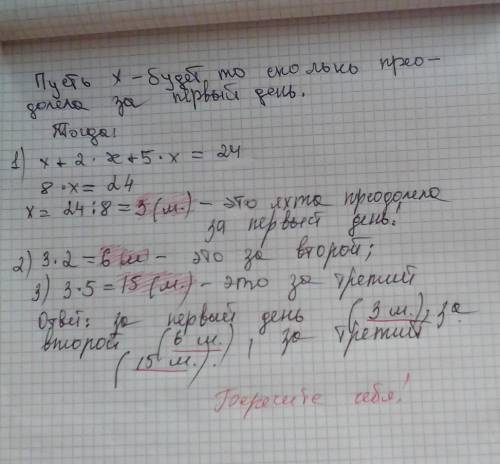 Пусть х - будет то сколько прео-
долела за первый день.
Тогда:
1) х + 2 · х + 5 · х = 24
8 · х = 24
х = 24 : 8 = 3 (м.) - это яхта преодолела
за первый день.
2) 3 · 2 = 6 м - это за второй;
3) 3 · 5 = 15 (м.) - это за третий
Ответ: за первый день (3 м.), за
второй (6 м.), за третий
(15 м.).
Берегите себя!